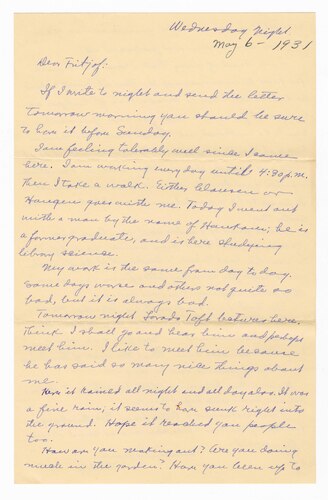 Wednesday Night
May 6 - 1931
Dear Fritjof:
If I write to night and send the letter
tomorrow morning you should be sure
to have it before Sunday.
I am feeling tolerably well since I came
here. I am working every day until 4:30 p.m.
Then I take a walk. Either Clausen or
Haugen goes with me. Today I went out
with a man by the name of he is
a former graduate, and is here studying
library science.
My work is the same from day to day.
Some days worse and others not quite so
bad, but it is always bad.
Tomorrow night Lorado Taft lectures here.
Think I shall go and hear him and perhaps
meet him. I like to meet him because
he has said so many nice things about
me.
Here it rained all night and all day also. It was
a fine rain, it seems to have sunk right into
the ground. Hope it reached you people
too.
How are you making out? Are you doing
much in the garden? Have you been up to